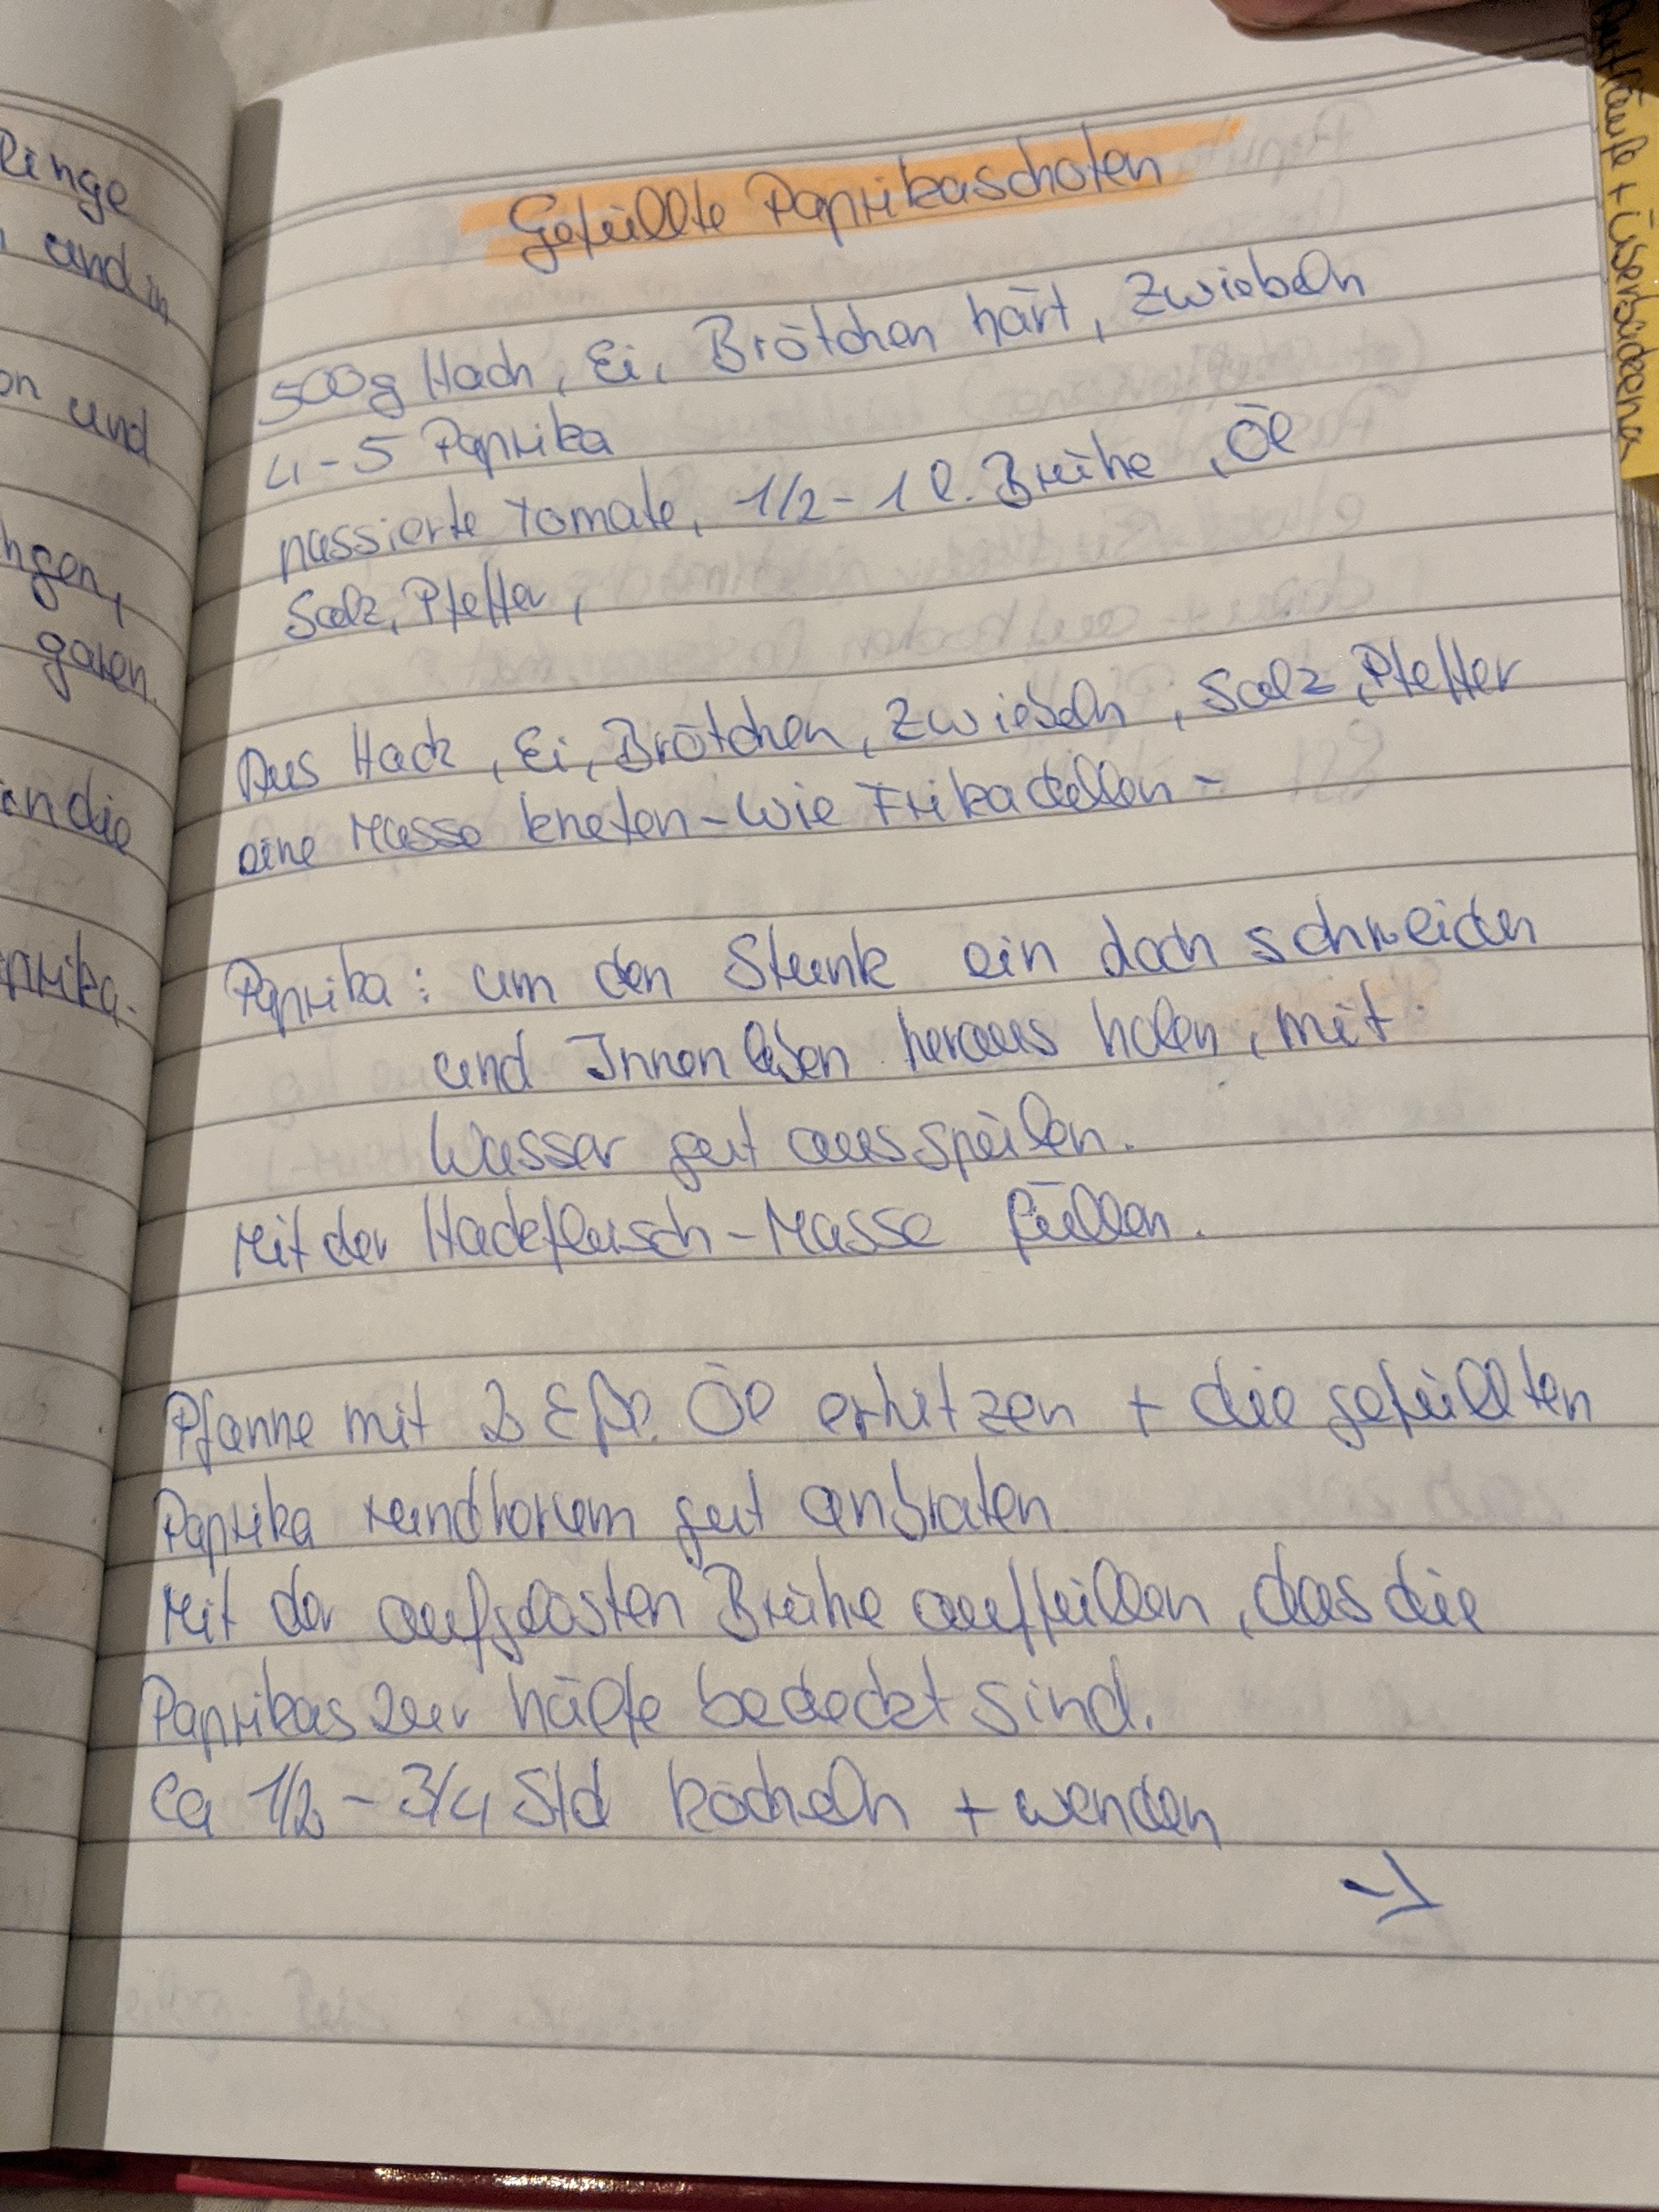 Ringe
und in
on und
hgen,
garen.
in die
aprika.
Gefüllte Paprikaschoten
500g Hach, Ei, Brötchen härt, Zwiebeln
4-5 Paprika
passierte Tomate, 1/2-1 l. Brühe, Öl
Salz, Pfeffer,
Aus Hack, Ei, Brötchen, Zwiebeln, Salz, Pfeffer
eine Masse kneten-wie Frikadellen-
Paprika: um den Strunk ein doch schneiden
und Innenleben heraus holen, mit
Wasser gut ausspülen.
Mit der Hackfleisch-Masse füllen.
Pfanne mit 2 Eßl. Öl erhitzen + die gefüllten
Paprika rundherum gut anbraten
Mit der aufgelösten Brühe auffüllen, das die
Paprikas zur hälfte bedeckt sind.
Ca 1/2-3/4 Std köcheln + wenden
→